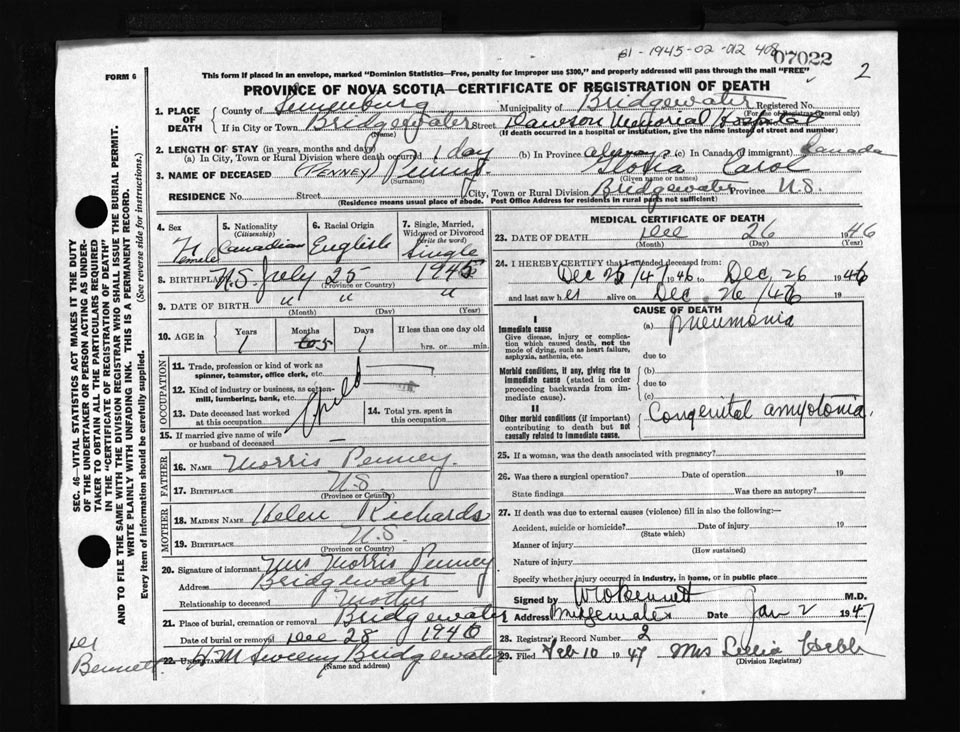 61-1945-02-012 408
07022
2
FORM 6
This form if placed in an envelope, marked "Dominion Statistics—Free, penalty for improper use $300," and properly addressed will pass through the mail "FREE"
PROVINCE OF NOVA SCOTIA—CERTIFICATE OF REGISTRATION OF DEATH
1. PLACE OF DEATH County of Lunenburg Municipality of Bridgewater Registered No.
(For use of Registrar General only)
If in City or Town Bridgewater Street Dawson Memorial Hospital
(Name) (If death occurred in a hospital or institution, give the name instead of street and number)
2. LENGTH OF STAY (in years, months and days)
(a) In City, Town or Rural Division where death occurred 1 day (b) In Province always (c) In Canada (if immigrant) Canada
3. NAME OF DECEASED (PENNEY) Penney Carol
(Surname) (Given name or names)
RESIDENCE No. Street City, Town or Rural Division Bridgewater Province N.S.
(Residence means usual place of abode. Post Office Address for residents in rural parts not sufficient)
4. Sex
F
Female
5. Nationality
(Citizenship)
Canadian
6. Racial Origin
English
7. Single, Married, Widowed or Divorced
(write the word)
Single
8. BIRTHPLACE N.S. July 25 1945
(Province or Country)
9. DATE OF BIRTH " " "
(Month) (Day) (Year)
10. AGE in Years Months Days If less than one day old
1 5 1 hrs. or min.
OCCUPATION
11. Trade, profession or kind of work as spinner, teamster, office clerk, etc.
12. Kind of industry or business, as cotton-mill, lumbering, bank, etc.
Child
13. Date deceased last worked at this occupation
14. Total yrs. spent in this occupation
15. If married give name of wife or husband of deceased —
FATHER
16. NAME Morris Penney.
17. BIRTHPLACE N.S.
(Province or Country)
MOTHER
18. MAIDEN NAME Helen Richards
19. BIRTHPLACE N.S.
(Province or Country)
20. Signature of informant Mrs Morris Penney
Address Bridgewater
Relationship to deceased Mother
21. Place of burial, cremation or removal Bridgewater
Date of burial or removal Dec 28 1946
22. UNDERTAKER W M Sweeny Bridgewater
(Name and address)
MEDICAL CERTIFICATE OF DEATH
23. DATE OF DEATH Dec 26 1946
(Month) (Day) (Year)
24. I HEREBY CERTIFY that I attended deceased from:
Dec 46 to Dec 26 1946
and last saw her alive on Dec 26/46 19
CAUSE OF DEATH
I
Immediate cause (a) Pneumonia
Give disease, injury or complication which caused death, not the mode of dying, such as heart failure, asphyxia, asthenia, etc.
due to
Morbid conditions, if any, giving rise to immediate cause (stated in order proceeding backwards from immediate cause).
(b)
due to
(c)
II
Other morbid conditions (if important) contributing to death but not causally related to immediate cause.
Congenital amyotonia.
25. If a woman, was the death associated with pregnancy?
26. Was there a surgical operation? Date of operation 19
State findings Was there an autopsy?
27. If death was due to external causes (violence) fill in also the following:—
Accident, suicide or homicide? Date of injury 19
(State which)
Manner of injury
(How sustained)
Nature of injury
Specify whether injury occurred in industry, in home, or in public place
Signed by W O Bennett M.D.
Address Bridgewater Date Jan 2 1947
28. Registrar's Record Number 2
29. Filed Feb 10 1947 Mrs Hebb
(Division Registrar)
SEC. 46—VITAL STATISTICS ACT MAKES IT THE DUTY
OF THE UNDERTAKER OR PERSON ACTING AS UNDER-
TAKER TO OBTAIN ALL THE PARTICULARS REQUIRED
IN THE "CERTIFICATE OF REGISTRATION OF DEATH"
AND TO FILE THE SAME WITH THE DIVISION REGISTRAR WHO SHALL ISSUE THE BURIAL PERMIT.
WRITE PLAINLY WITH UNFADING INK. THIS IS A PERMANENT RECORD.
Every item of information should be carefully supplied. (See reverse side for instructions.)
Bennett